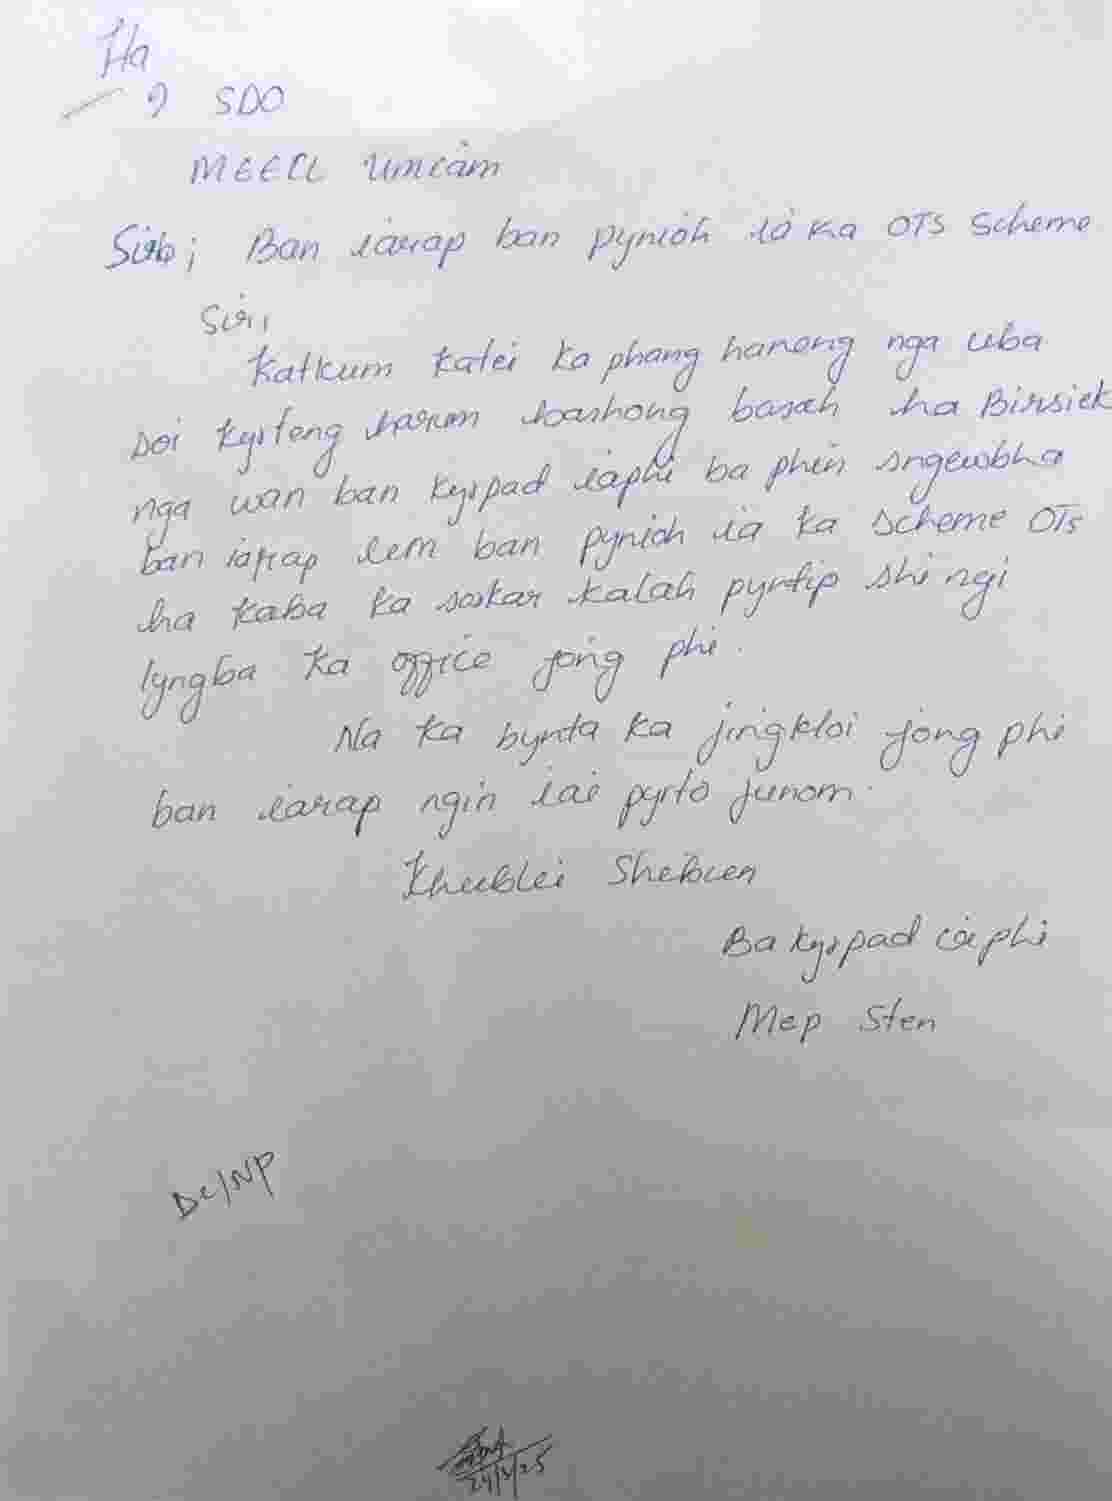 Ha
i) SDO
MEECL Umiam
Sub; Ban iarap ban pynioh ia ka OTS Scheme
Sir,
Katkum katei ka phang haneng nga uba
soi kyrteng harum bashong basah ha Birsiek
nga wan ban kyrpad iaphi ba phin sngewbha
ban iarap lem ban pynioh ia ka scheme OTs
ha kaba ka sorkar kalah pyntip shi ngi
lyngba ka office jong phi.
Na ka bynta ka jingkloi jong phi
ban iarap ngin iai pyrto junom.
Khublei Shibun
Ba kyrpad iaphi
Mep Sten
Bc/NP
24/2/25